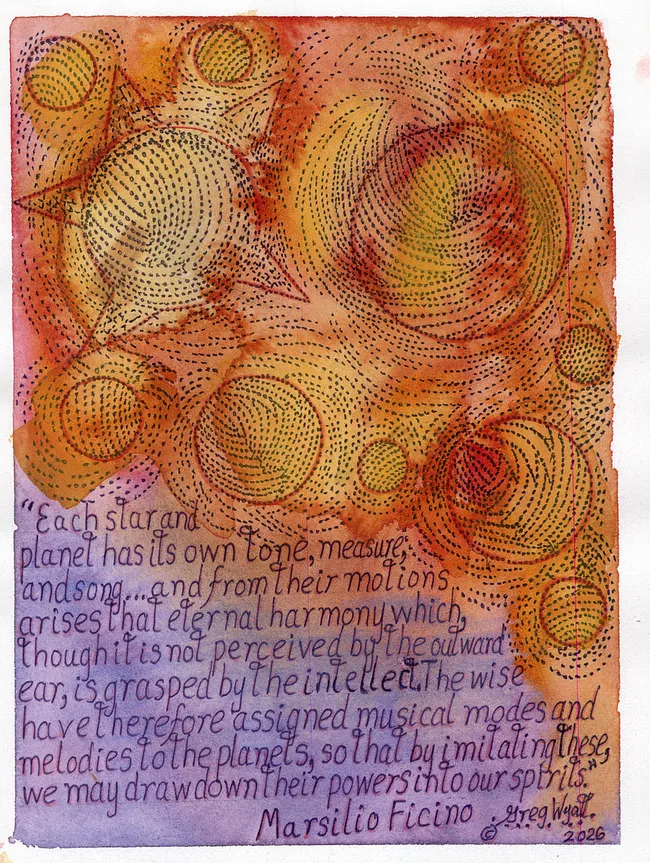 "Each star and
planet has its own tone, measure,
and song...and from their motions
arises that eternal harmony which,
though it is not perceived by the outward
ear, is grasped by the intellect. The wise
have therefore assigned musical modes and
melodies to the planets, so that by imitating these,
we may draw down their powers into our spirits."
Marsilio Ficino
© Greg Wyatt.
2026